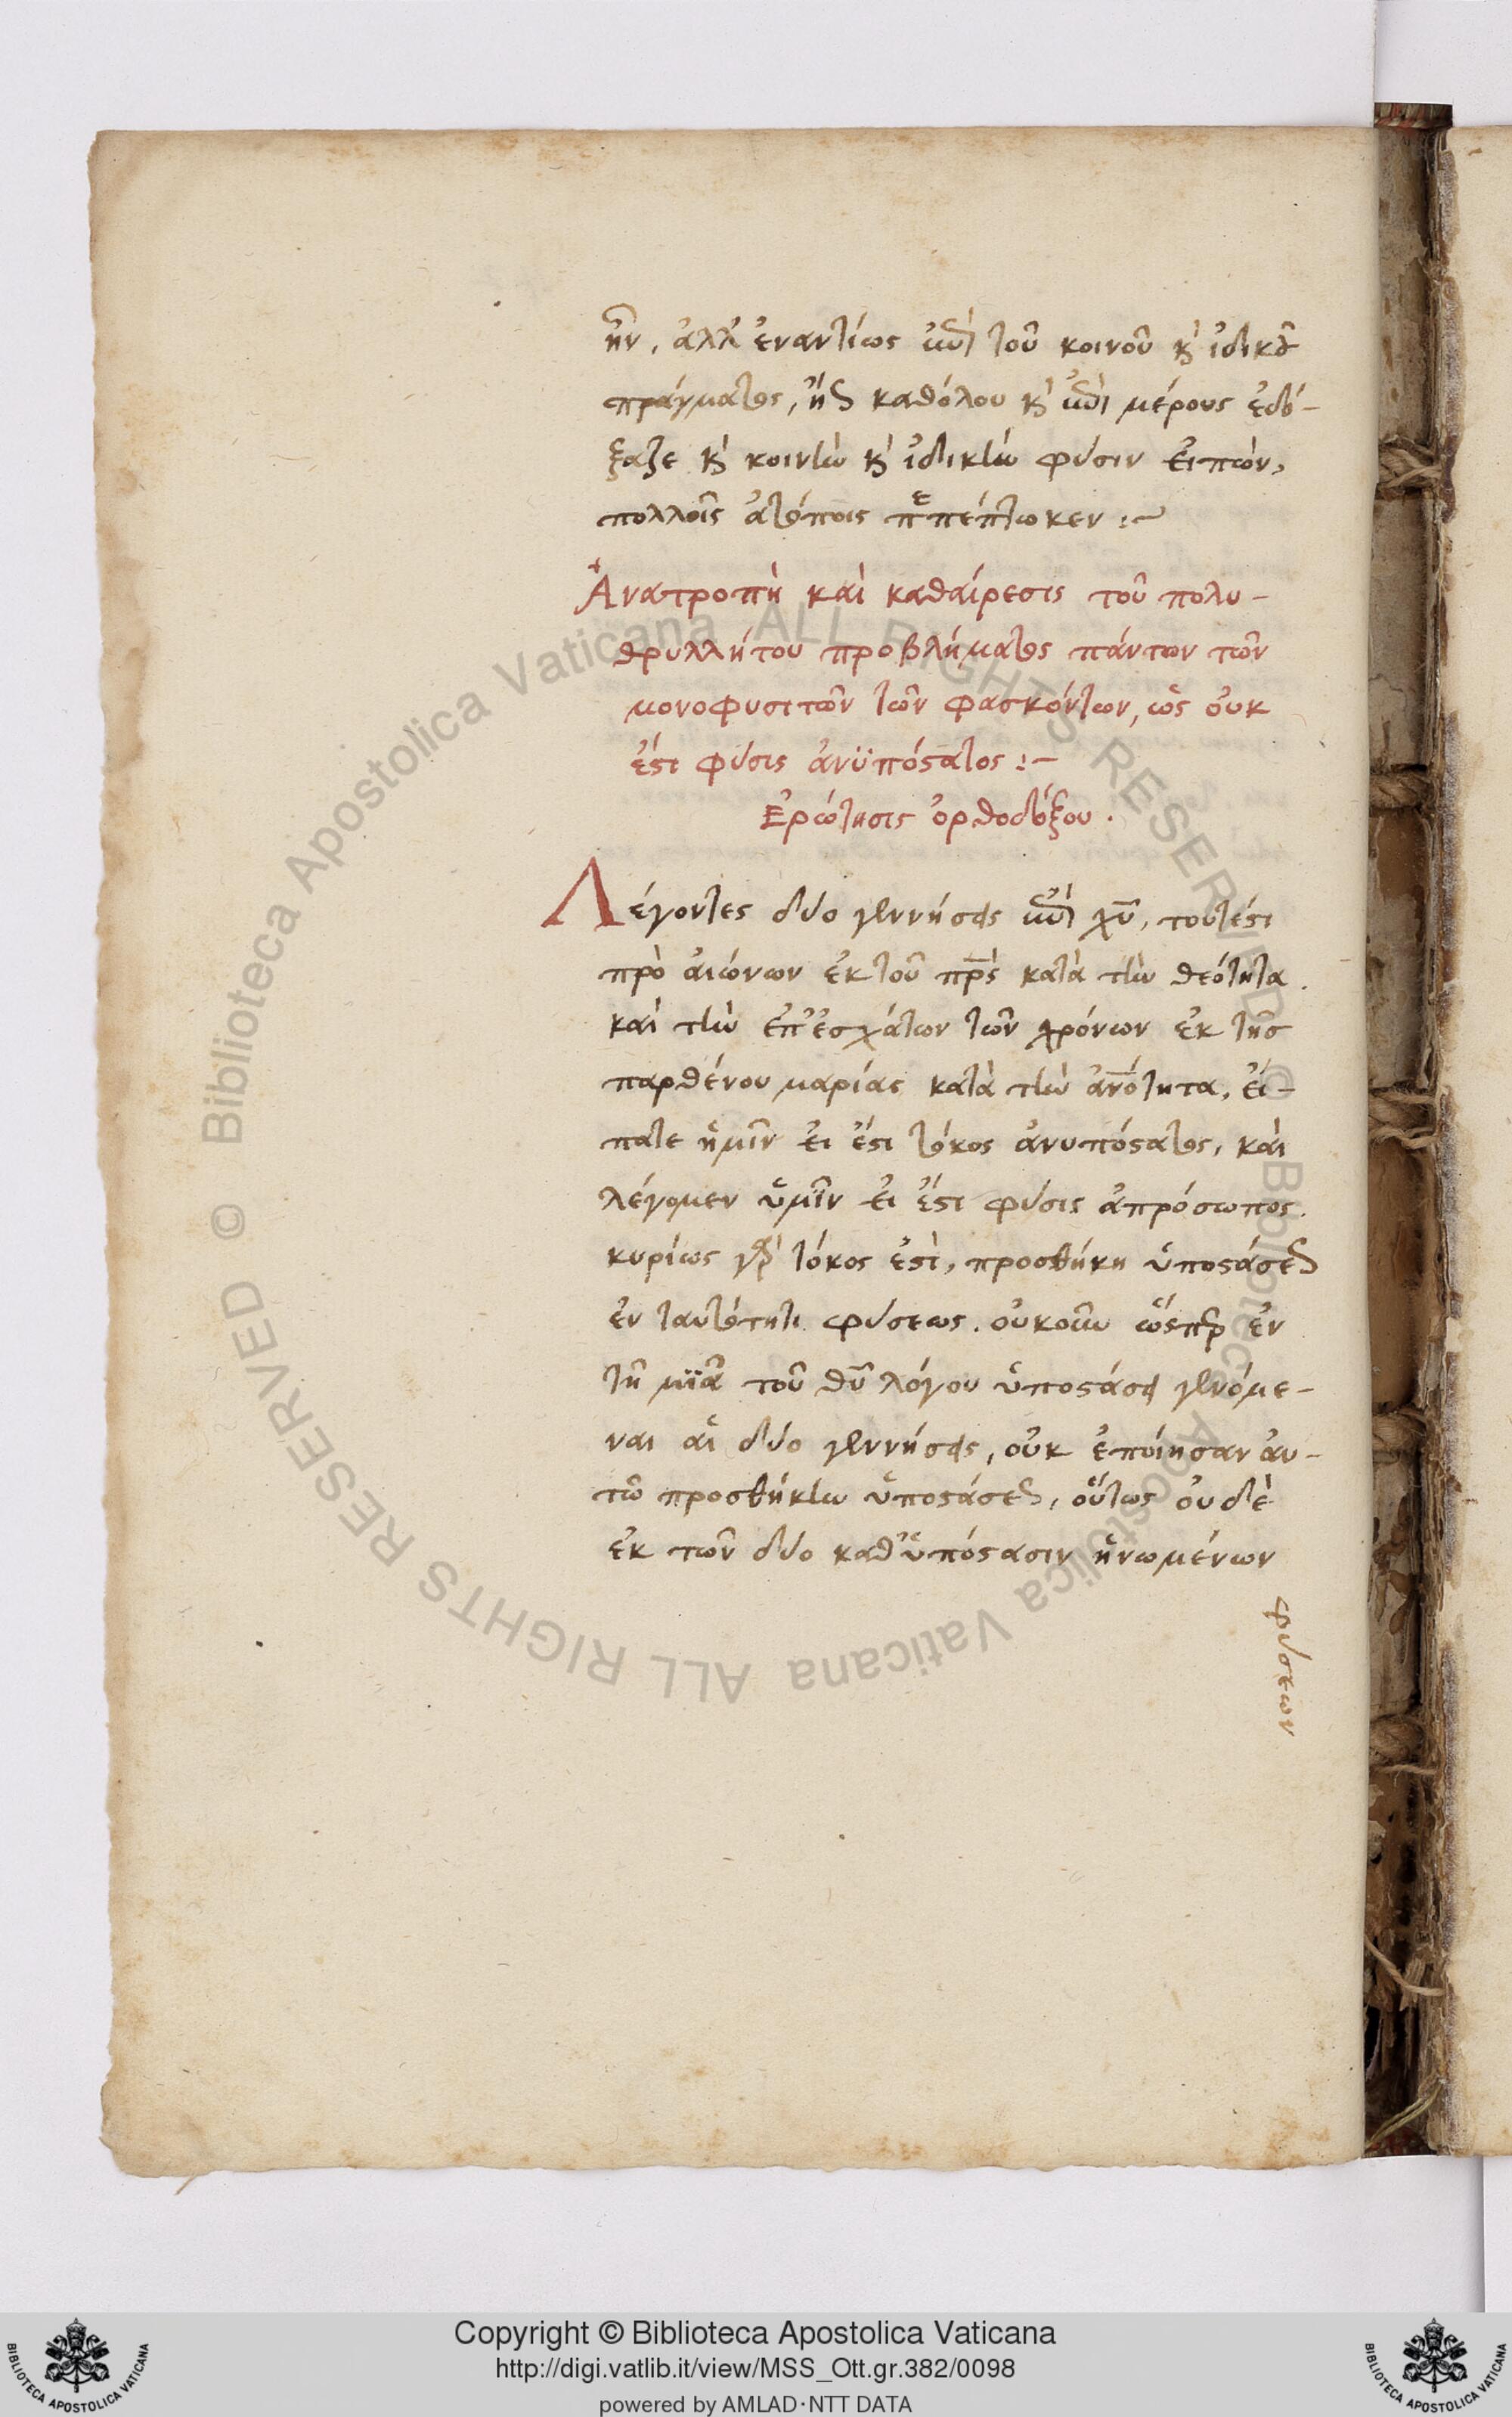 ἦν, ἀλλ' ἐναντίως ἐπὶ τοῦ κοινοῦ κὶ ἰδικοῦ
πράγματος, ἤγουν καθόλου κὶ ἐπὶ μέρους ἐδό-
ξαζε κὶ κοινὴν κὶ ἰδικὴν φύσιν εἰπὼν,
πολλοῖς ἀτόποις περιπέπτωκεν :~
Ἀνατροπὴ καὶ καθαίρεσις τοῦ πολυ-
θρυλλήτου προβλήματος πάντων τῶν
μονοφυσιτῶν τῶν φασκόντων, ὡς οὐκ
ἔστι φύσις ἀνϋπόστατος :-
Ἐρώτησις ὀρθοδόξου.
Λέγοντες δύο γεννήσεις ἐπὶ χῦ, τουτέστι
πρὸ αἰώνων ἐκ τοῦ πρς κατὰ τὴν θεότητα.
καὶ τὴν ἐπ' ἐσχάτων τῶν χρόνων ἐκ τῆς
παρθένου μαρίας κατὰ τὴν ἀνότητα, εἴ-
πατε ἡμῖν εἰ ἔστι τόκος ἀνυπόστατος, καὶ
λέγομεν ὑμῖν εἰ ἔστι φύσις ἀπρόσωπος.
κυρίως γὰρ τόκος ἐστὶ, προσθήκη ὑποστάσεως
ἐν ταυτότητι φύσεως. οὐκοῦν ὥσπερ ἐν
τῇ μϊᾷ τοῦ θῦ λόγου ὑποστάσει γενόμε-
ναι αἱ δύο γεννήσεις, οὐκ ἐποίησαν αὐ-
τῶ προσθήκην ὑποστάσεως, οὕτως οὐδὲ
ἐκ τῶν δύο καθ' ὑπόστασιν ἡνωμένων
φύσεων
© Biblioteca Apostolica Vaticana ALL RIGHTS RESERVED © Biblioteca Apostolica Vaticana ALL RIGHTS RESERVED
Copyright © Biblioteca Apostolica Vaticana
http://digi.vatlib.it/view/MSS_Ott.gr.382/0098
powered by AMLAD·NTT DATA
BIBLIOTECA APOSTOLICA VATICANA
BIBLIOTECA APOSTOLICA VATICANA